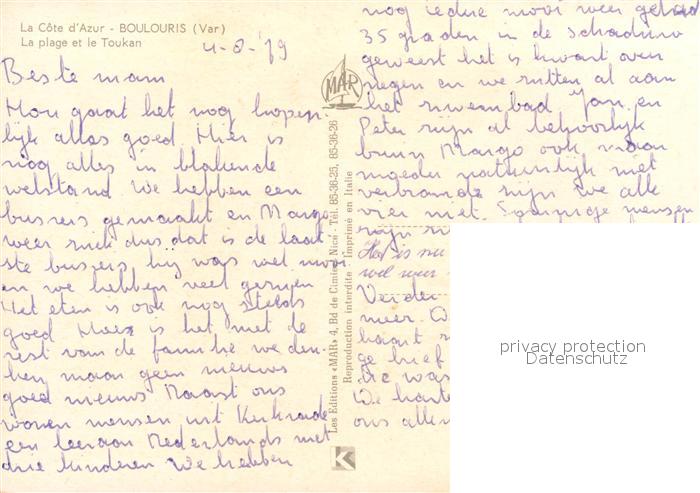 La Côte d'Azur - BOULOURIS (Var)
La plage et le Toukan
4-8-'79
Beste mam
Hoe gaat het nog hopen-
lijk alles goed. Hier is
nog alles in blakende
welstand we hebben een
busreis gemaakt en Margo
weer ziek dus dat is de laat
ste busreis hij was wel mooi
en we hebben veel gezien
Het eten is ook nog steeds
goed Hoe is het met de
rest van de familie we den-
ken maar geen nieuws
goed nieuws Naast ons
wonen mensen uit Kerkrade
een leeraar Nederlands met
drie kinderen we hebben
MAR
Les Editions «MAR» 4, Bd de Cimiez, Nice - Tél. 85-36-25, 85-36-26
Reproduction interdite - Imprimé en Italie
K
nog iedere mooi weer gehad
35 graden in de schaduw
geweest het is kwart over
negen en we zitten al aan
het zwembad Jan en
Peter zijn al behoorlijk
bruin Margo ook maar
moeder natuurlijk niet
verbrand zijn we alle
vier niet. Sommige mensen
zijn
Het is nu
wel weer
Verder
meer.
kaart
ge brief
die was
De harte
ons allen
privacy protection
Datenschutz